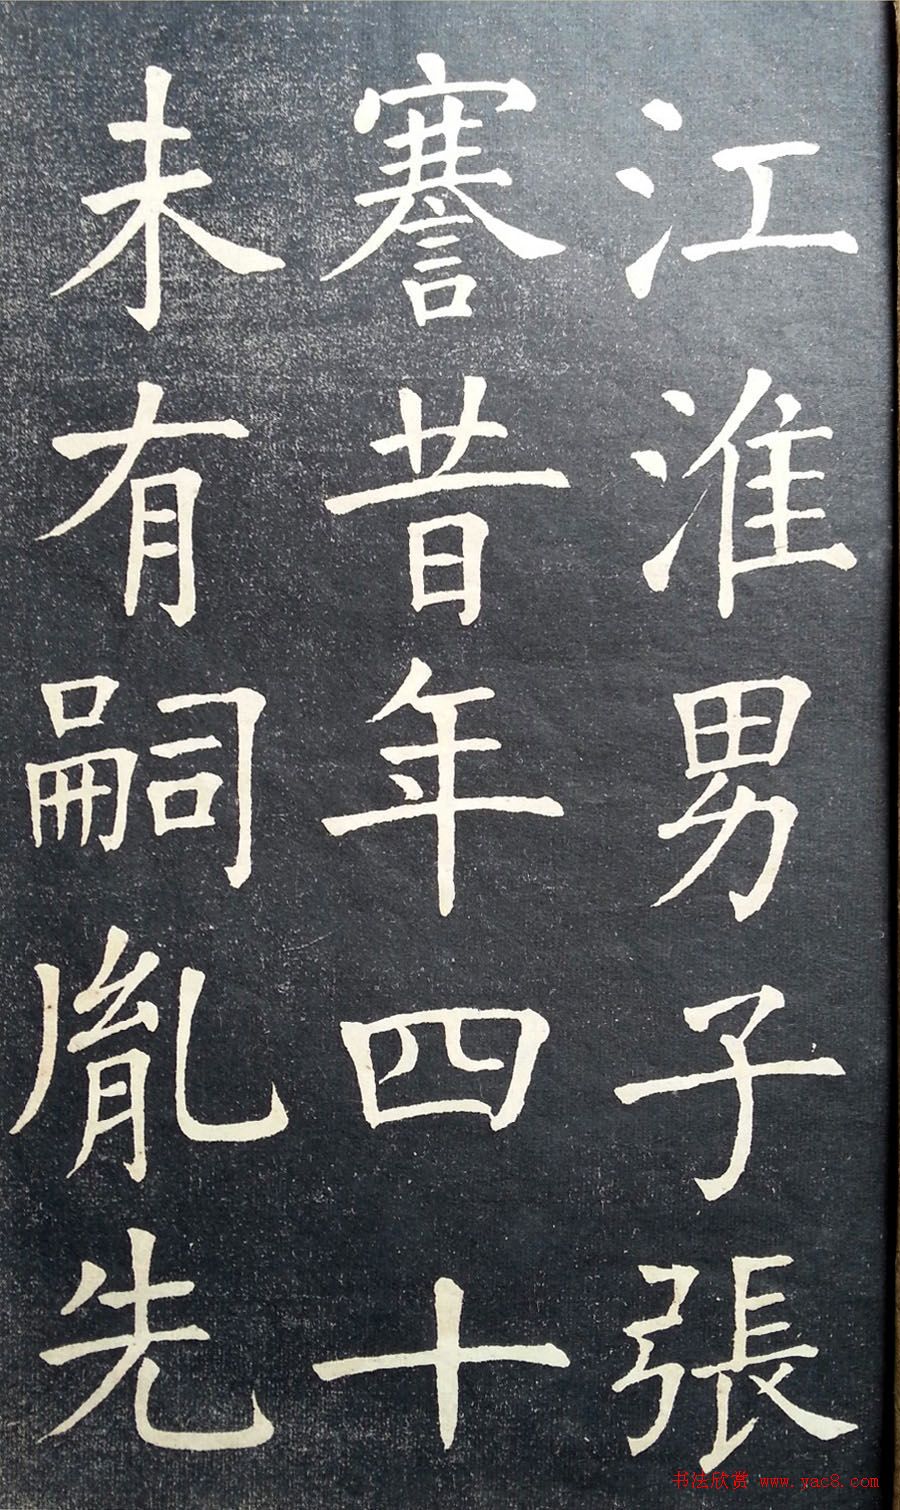 江淮男子張
謇昔年四十
未有嗣胤先
书法欣赏 www.yac8.com